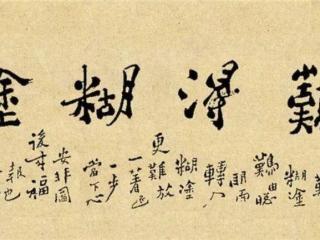 難得糊塗
難糊塗
難由聰
明而
轉入
糊塗
更難放
一著退
一步
當下心
安非圖
後来福
報也